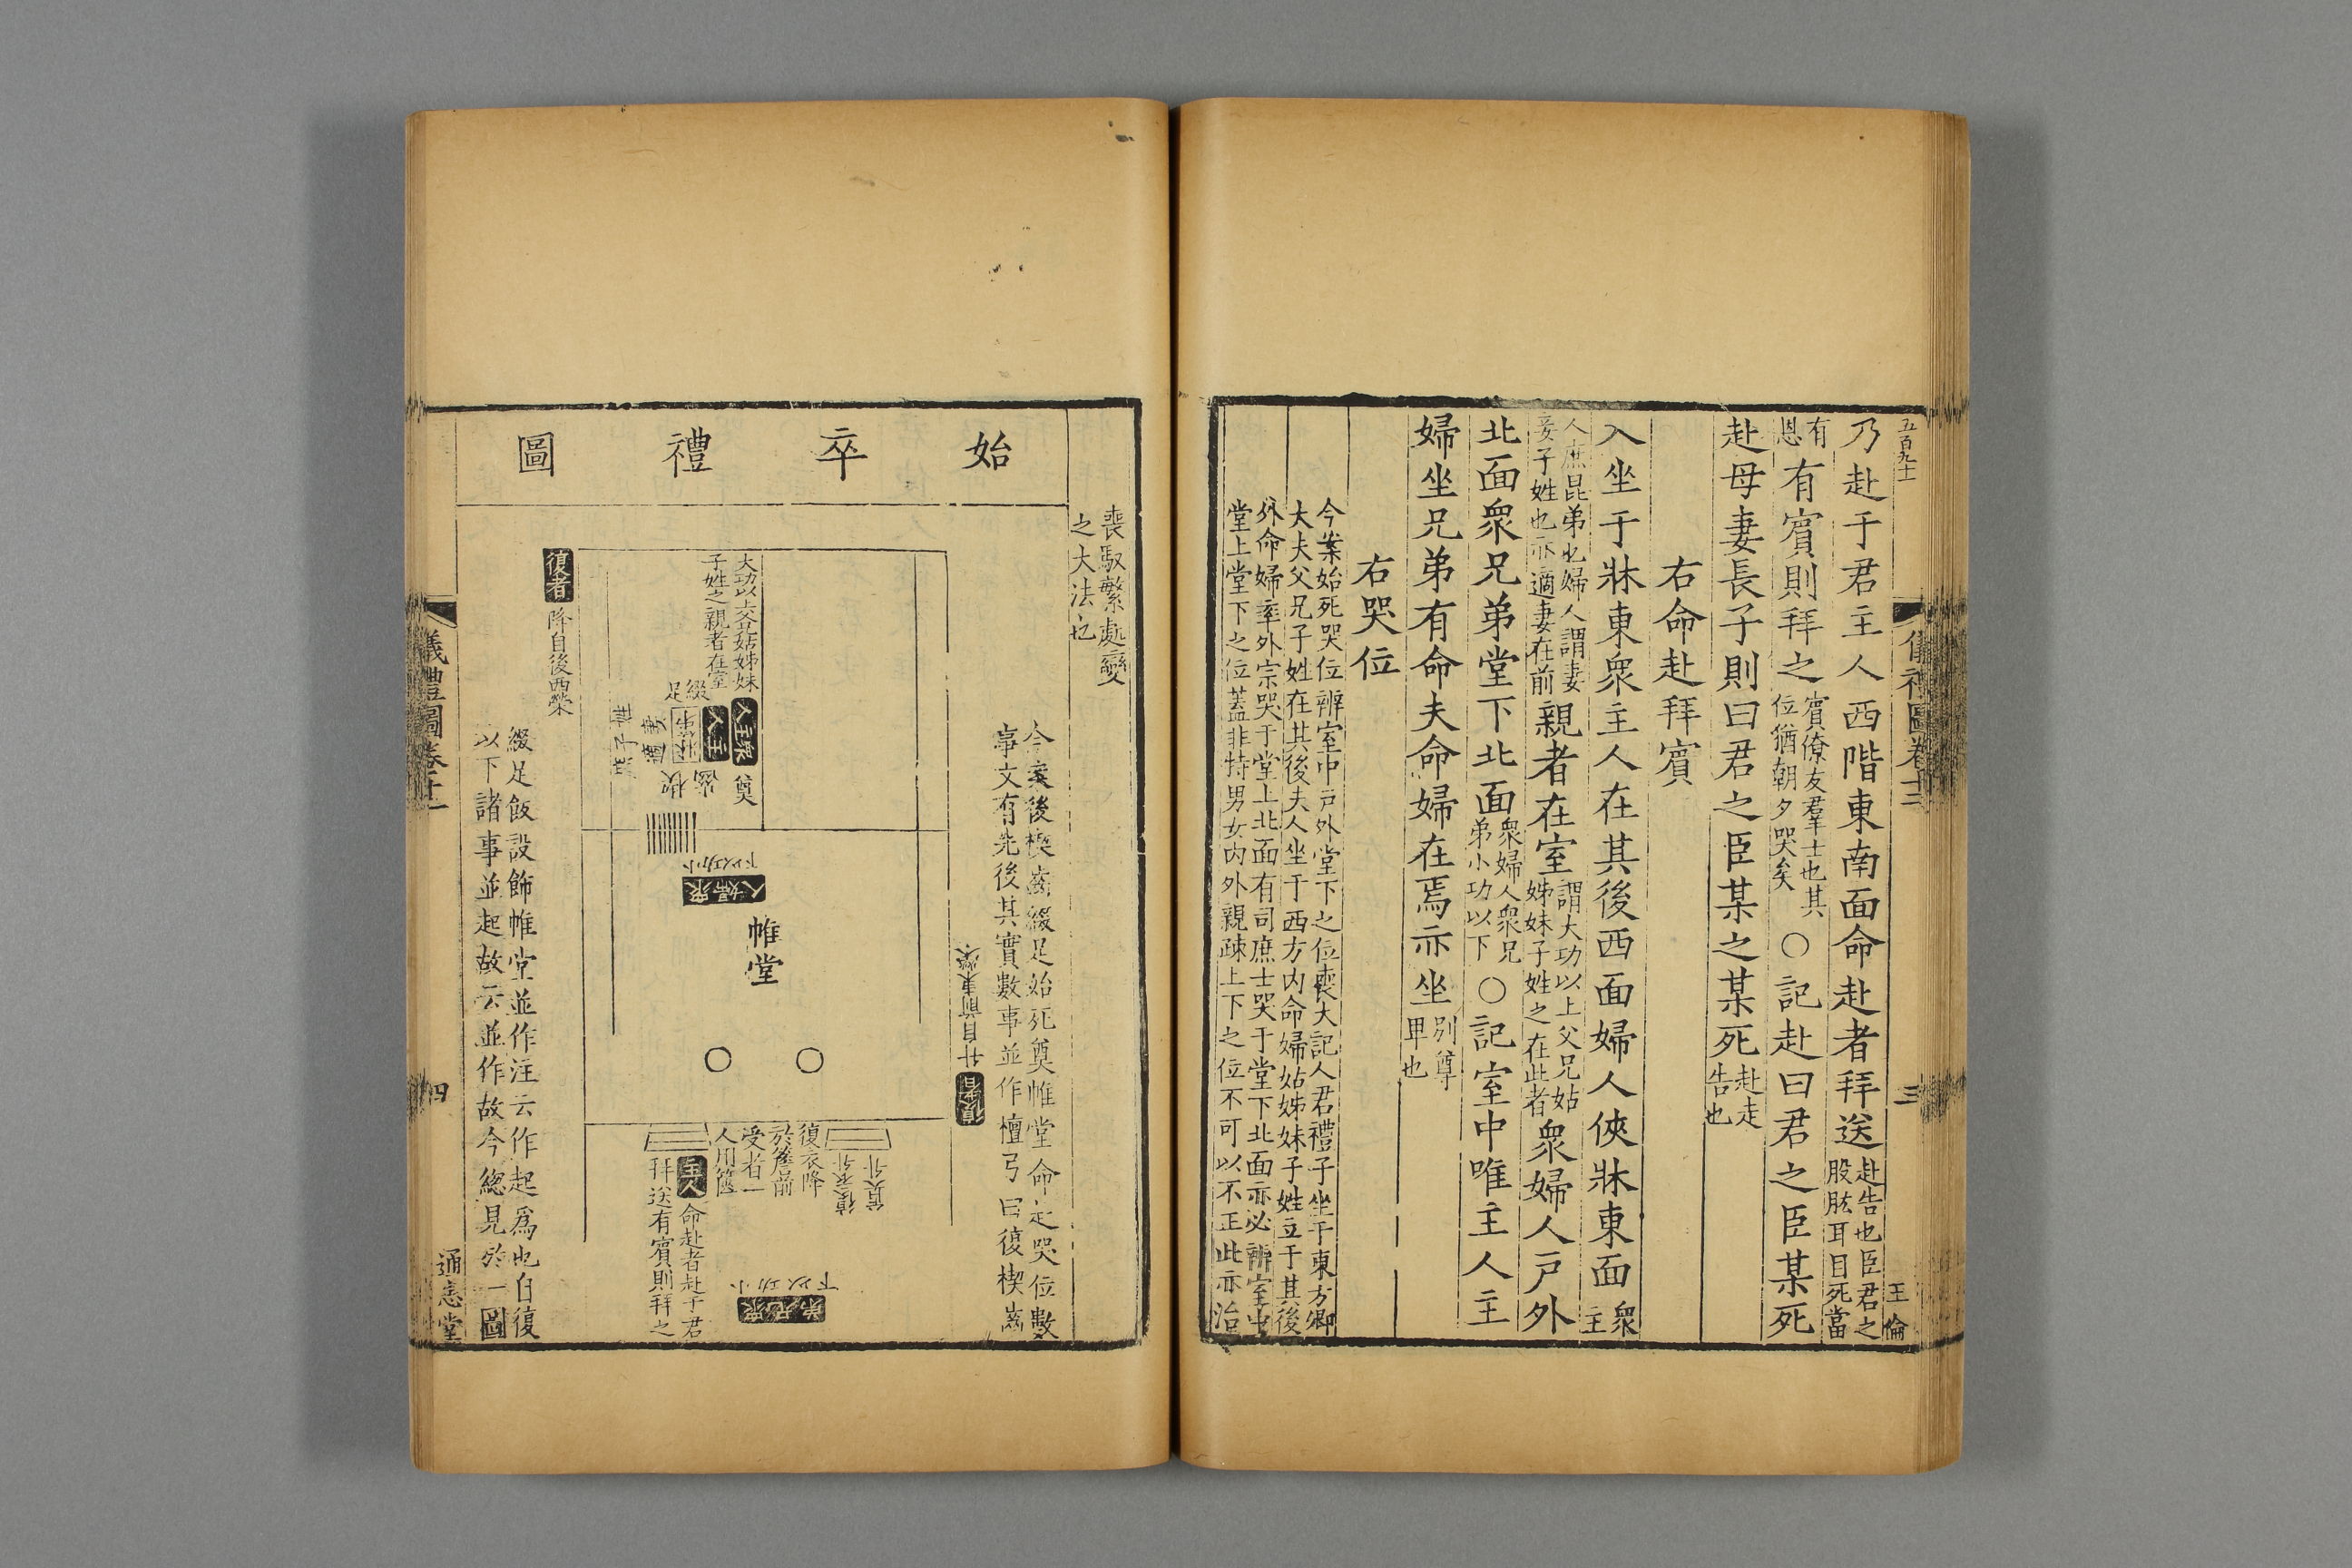 五百九十
乃赴于君主人西階東南面命赴者拜送赴告也臣君之股肱耳目死當
有恩有賓則拜之賓僚友羣士也其位猶朝夕哭矣○記赴曰君之臣某死
赴母妻長子則曰君之臣某之某死赴走告也
右命赴拜賓
入坐于牀東衆主人在其後西面婦人俠牀東面衆主
人庶昆弟也婦人謂妻妾子姓也亦適妻在前親者在室謂大功以上父兄姑姊妹子姓之在此者衆婦人戶外
北面衆兄弟堂下北面衆婦人衆兄弟小功以下○記室中唯主人主
婦坐兄弟有命夫命婦在焉亦坐別尊卑也
右哭位
今案始死哭位辨室中戶外堂下之位喪大記人君禮子坐于東方卿
大夫父兄子姓在其後夫人坐于西方內命婦姑姊妹子姓立于其後
外命婦率外宗哭于堂上北面有司庶士哭于堂下北面亦必辨室中
堂上堂下之位蓋非特男女內外親疎上下之位不可以不正此亦治
儀禮圖卷十二
三
王倫
喪馭繁處變
之大法也
始卒禮圖
今案後楔齒綴足始死奠帷堂命赴哭位數
事文有先後其實數事並作檀弓曰復楔齒
綴足飯設飾帷堂並作注云作起爲也自復
以下諸事並起故云並作故今總見於一圖
復者
升自前東榮
大功以上父兄姑姊妹
子姓之親者在室
衆主人
奠
主人
綴足
楔齒
妻
小功以下
衆婦人
帷堂
復衣降
於簷前
受者一
人用篋
主人
命赴者赴于君
拜送有賓則拜之
小功以下
衆兄弟
復者
降自後西榮
儀禮圖卷十二
四
通志堂